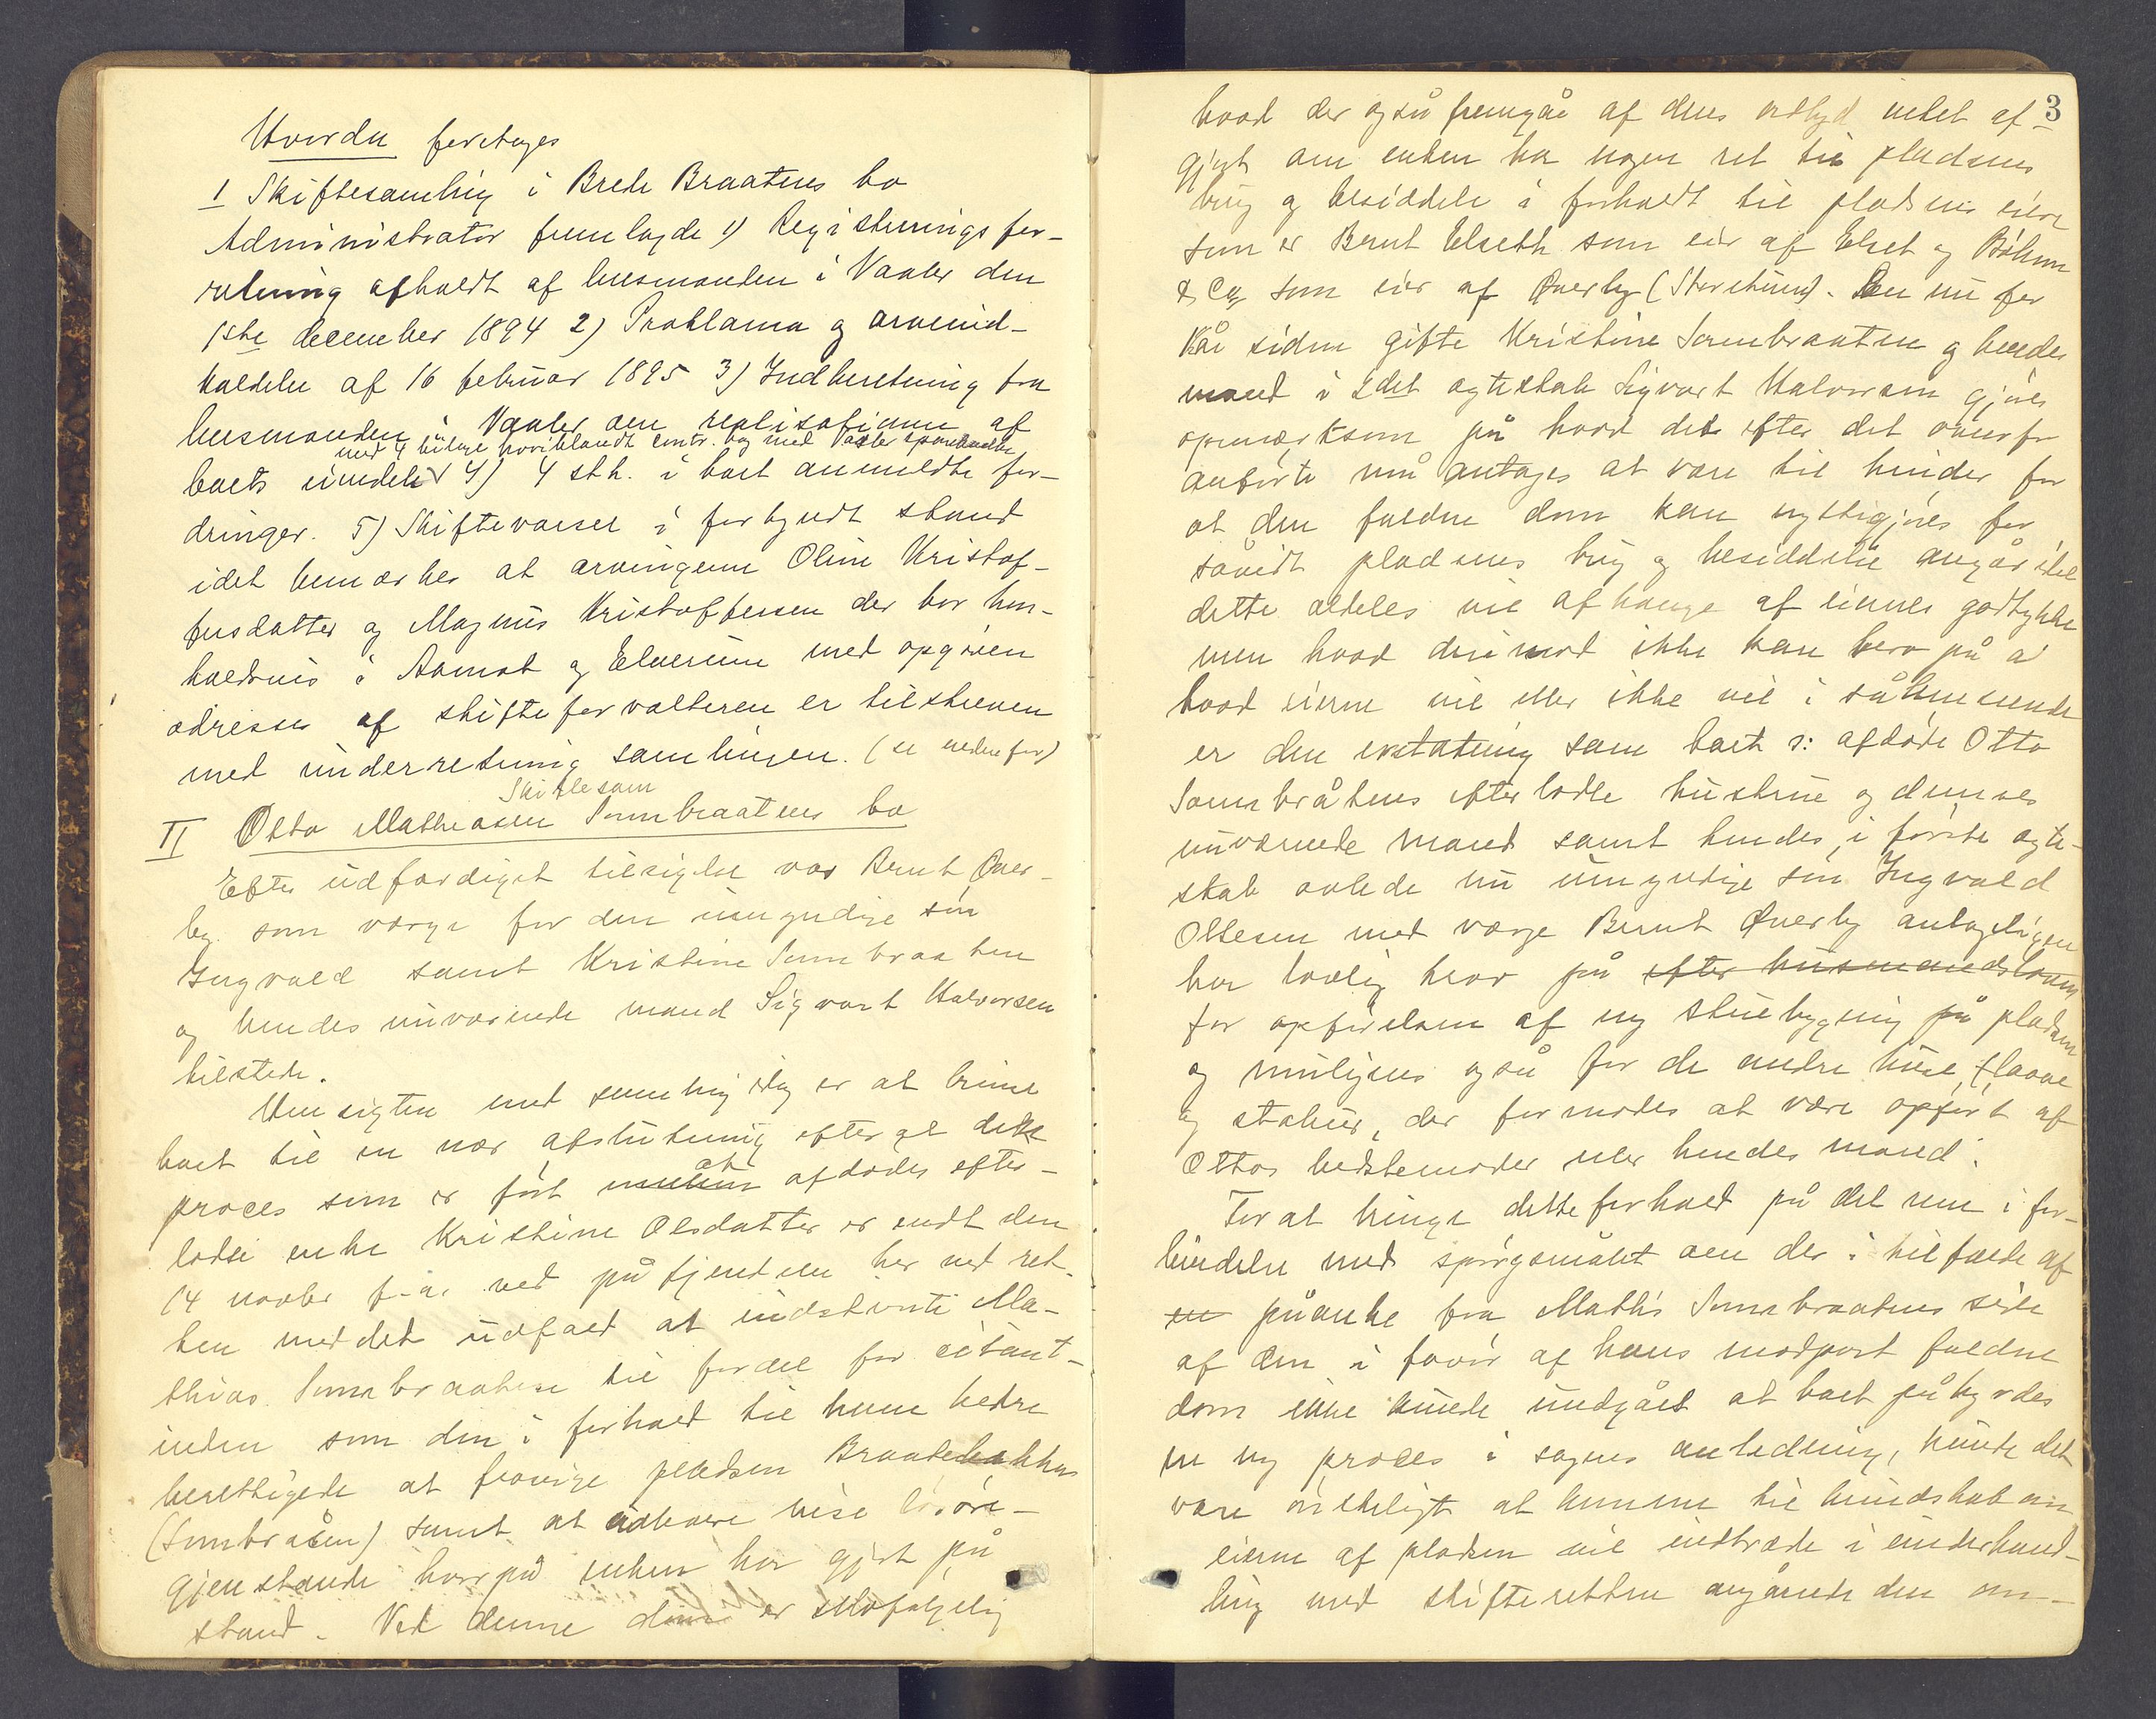 Hvorda foretages
I Skiftesamling i Brede Braatens bo
Administrator fremlagde 1) Registreringsfor-
retning afholdt af lensmanden i Vaaler den
1ste december 1894 2) Proklama og arveind-
kaldelse af 16 februar 1895 3) Indberetning fra
lensmanden i Vaaler om realisationen af
med 4 bilage hvoriblandt contr. bog med Vaaler sparebank
boets eiendele 4) 4 stk. i boet anmeldte for-
dringer. 5) Skiftevarsel i forkyndt stand
idet bemærkes at arvingerne Oline Kristof-
fersdatter og Magnus Kristoffersen der bor hen-
holdsvis i Aamot og Elverum med opgiven
adresse af skifteforvalteren er tilskreven
med underretning samlingen. (se nedenfor)
Skiftesam
II Otto Mathiasen Sembraatens bo
Efter udfærdiget tilsigelse var Bernt Øver-
by som værge for den umyndige søn
Ingvald samt Kristine Sembraaten
og hendes nuværende mand Sigvart Halvorsen
tilstede.
Hensigten med samling idag er at bringe
boet til en nær afslutning efter at den
proces som er ført mellem at afdødes efter-
ladte enke Kristine Olsdatter er endt den
14 novbr f. a. ved på tjeneden her ved ret-
ten med det udfald at indstevnte Ma-
thias Sembraaten til fordel for citant-
inden som den i forhold til ham bedre
berettigede at fravige pladsen Braatebakken
(Sembråten) samt at udlevere visse løsøre-
gjenstande hvorpå enken har gjort på
stand. Ved denne dom er selvfølgelig
3
hvad der også fremgår af dens ordlyd intet af-
gjort om enken har nogen ret til pladsens
brug og besiddelse i forhold til pladsens eiere
som er Bernt Elseth som eier af Elset og Böhmer
& Co som eier af Øverby (Storetun). Den nu for
kår siden gifte Kristine Sembraaten og hendes
mand i 2det ægteskab Sigvart Halvorsen gjøres
opmærksom på hvad det efter det ovenfor
anførte må antages at være til hinder for
at den faldne dom kan nyttiggjøres for
såvidt pladsens brug og besiddelse angår idet
dette aldeles vil afhænge af eiernes godtykke
men hvad derimod ikke kan bero på a
hvad eierne vil eller ikke vil i såhenseende
er den erstatning som boet ɔ: afdøde Otto
Sembråtens efterladte hustru og dennes
nuværende mand samt hendes i første ægte-
skab avlede nu umyndige søn Ingvald
Ottesen med værge Bernt Øverby antageligen
har lovlig krav på efter husmandsloven
for opførelsen af ny stuebygning på pladsen
og muligens også for de andre huse, flaave
og stabur, der formodes at være opført af
Ottos bedstemoder eller hendes mand.
For at bringe dette forhold på det rene i for-
bindelse med spørgsmålet om der i tilfælde af
en påanke fra Mathis Sembraatens side
af den i favør af hans modpart faldne
dom ikke kunde undgåes at boet påbyrdes
en ny proces i sagens anledning, kunde det
være ønskeligt at komme til kundskab om
eierne af pladsen vil indtræde i underhand-
ling med skifteretten angående den om-